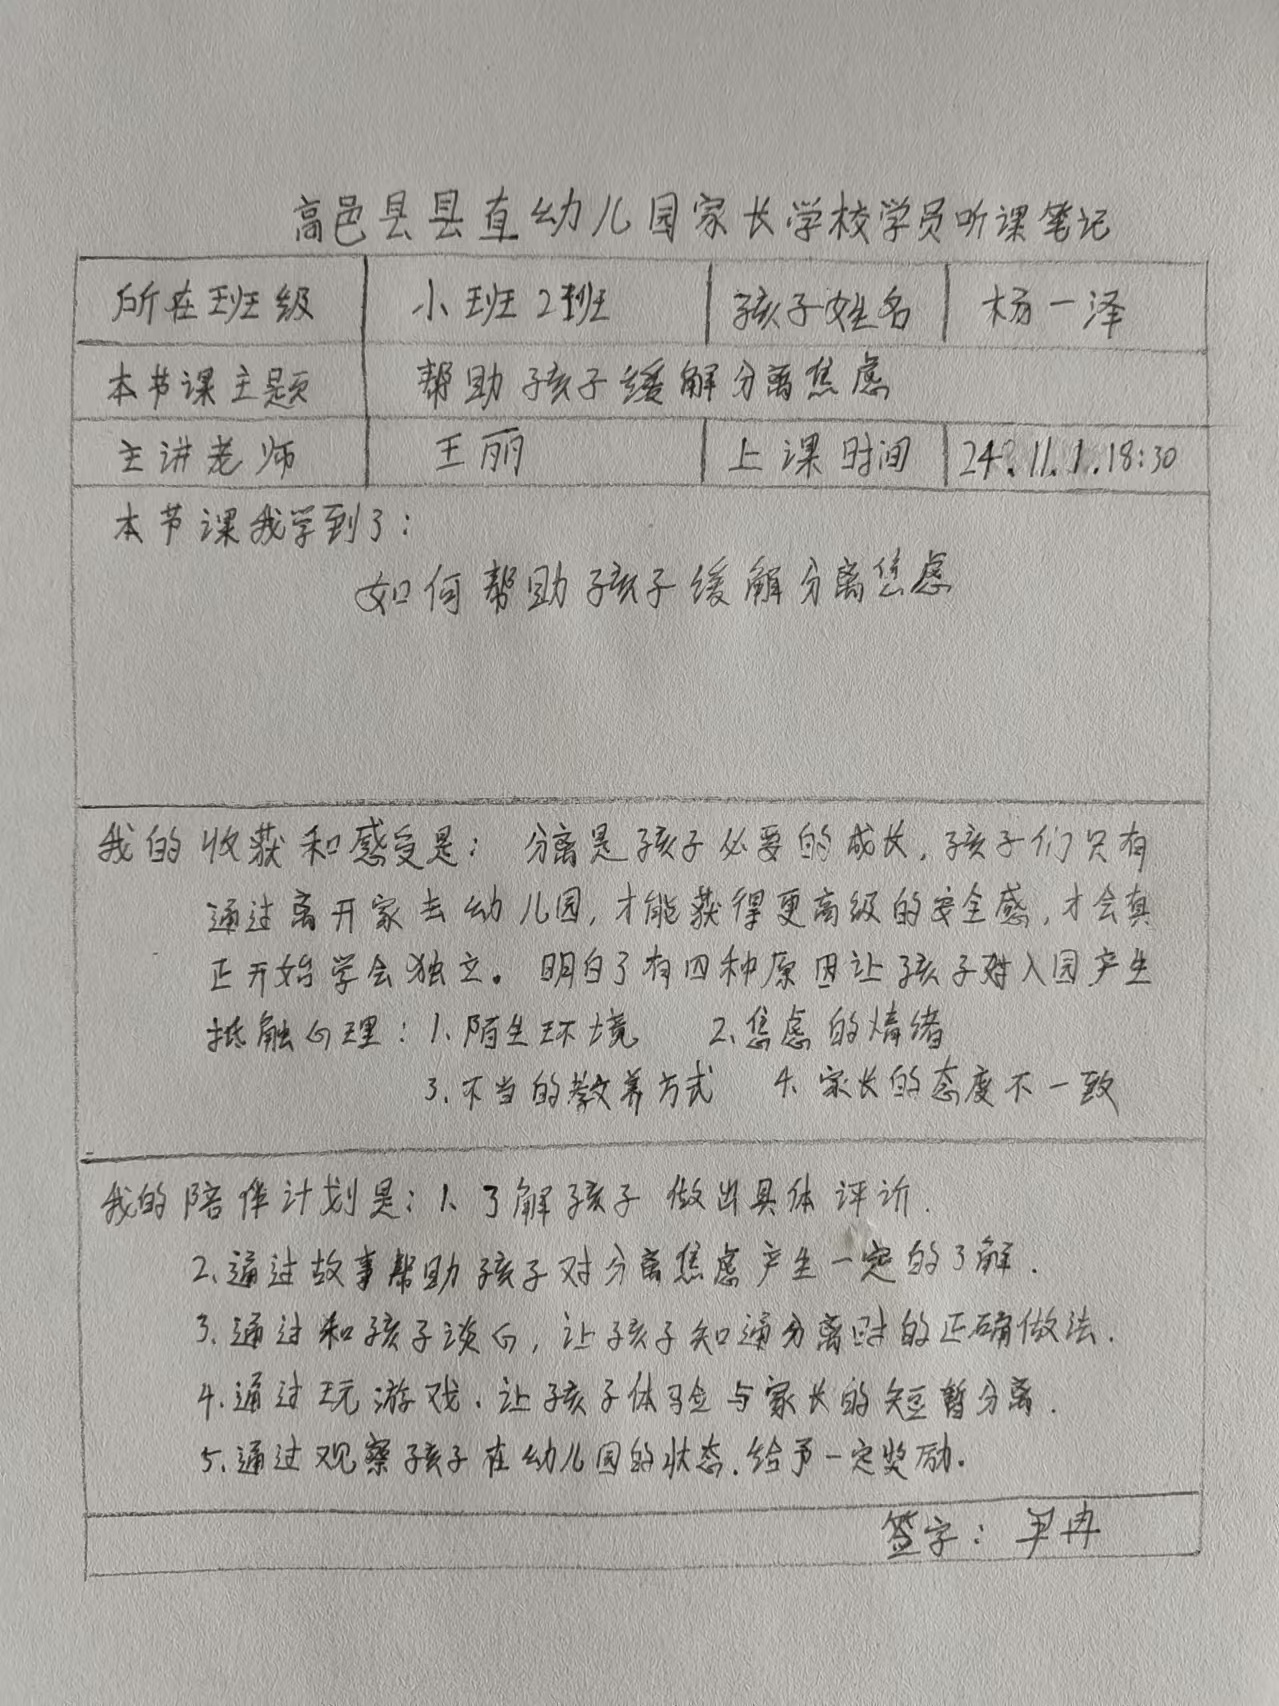 高邑县县直幼儿园家长学校学员听课笔记
所在班级 小班2班 孩子姓名 杨一泽
本节课主题 帮助孩子缓解分离焦虑
主讲老师 王丽 上课时间 24.11.1.18:30
本节课我学到了:
如何帮助孩子缓解分离焦虑
我的收获和感受是: 分离是孩子必要的成长,孩子们只有
通过离开家去幼儿园,才能获得更高级的安全感,才会真
正开始学会独立。明白了有四种原因让孩子对入园产生
抵触心理:1、陌生环境 2、焦虑的情绪
3、不当的教养方式 4、家长的态度不一致
我的陪伴计划是:1、了解孩子 做出具体评诉.
2、通过故事帮助孩子对分离焦虑产生一定的了解.
3、通过和孩子谈心,让孩子知通分离时的正确做法.
4、通过玩游戏、让孩子体验与家长的短暂分离.
5、通过观察孩子在幼儿园的状态,给予一定奖励.
签字: 冉